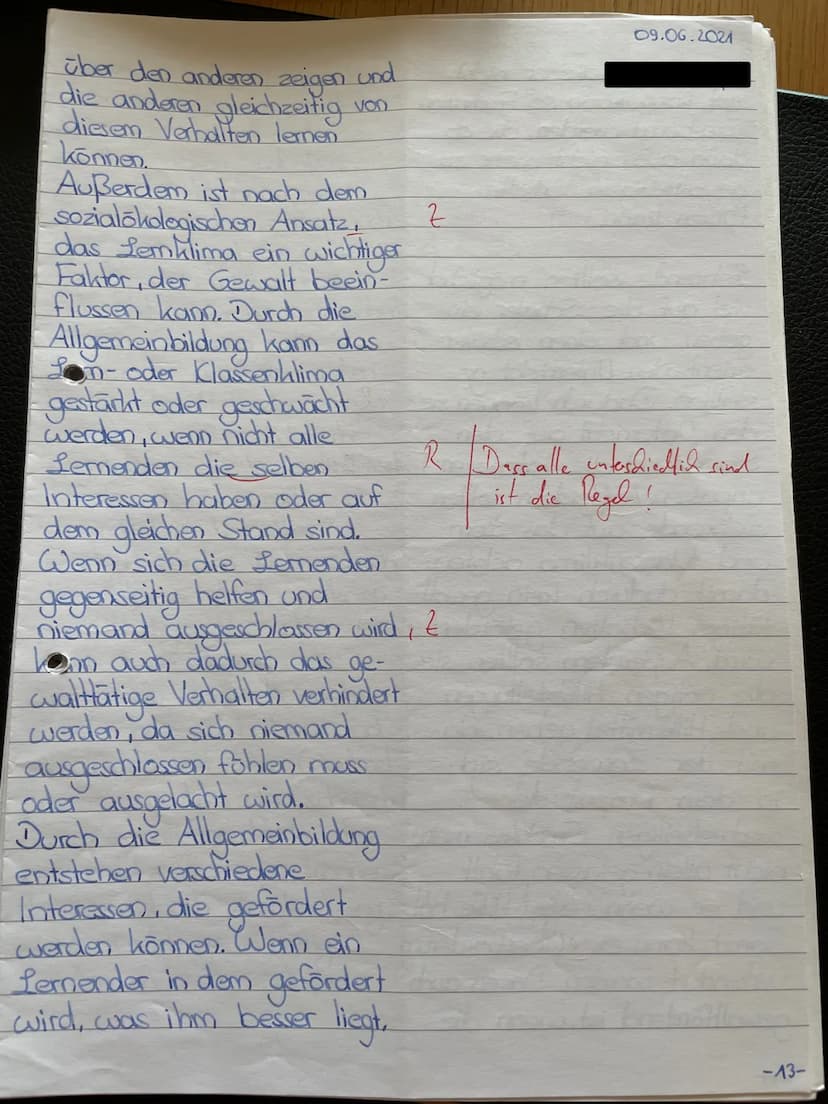 09.06.2021
über den anderen zeigen und
die anderen gleichzeitig von
diesem Verhalten lernen
können.
Außerdem ist nach dem
sozialökologischen Ansatz, Z
das Lernklima ein wichtiger
Faktor, der Gewalt beein-
flussen kann. Durch die
Allgemeinbildung kann das
Lern- oder Klassenklima
gestärkt oder geschwächt
werden, wenn nicht alle
Lernenden die selben R Dass alle unterschiedlich sind
Interessen haben oder auf ist die Regel!
dem gleichen Stand sind.
Wenn sich die Lernenden
gegenseitig helfen und
niemand ausgeschlossen wird, Z
kann auch dadurch das ge-
walttätige Verhalten verhindert
werden, da sich niemand
ausgeschlossen fühlen muss
oder ausgelacht wird.
Durch die Allgemeinbildung
entstehen verschiedene
Interessen, die gefördert
werden können. Wenn ein
Lernender in dem gefördert
wird, was ihm besser liegt,
-13-